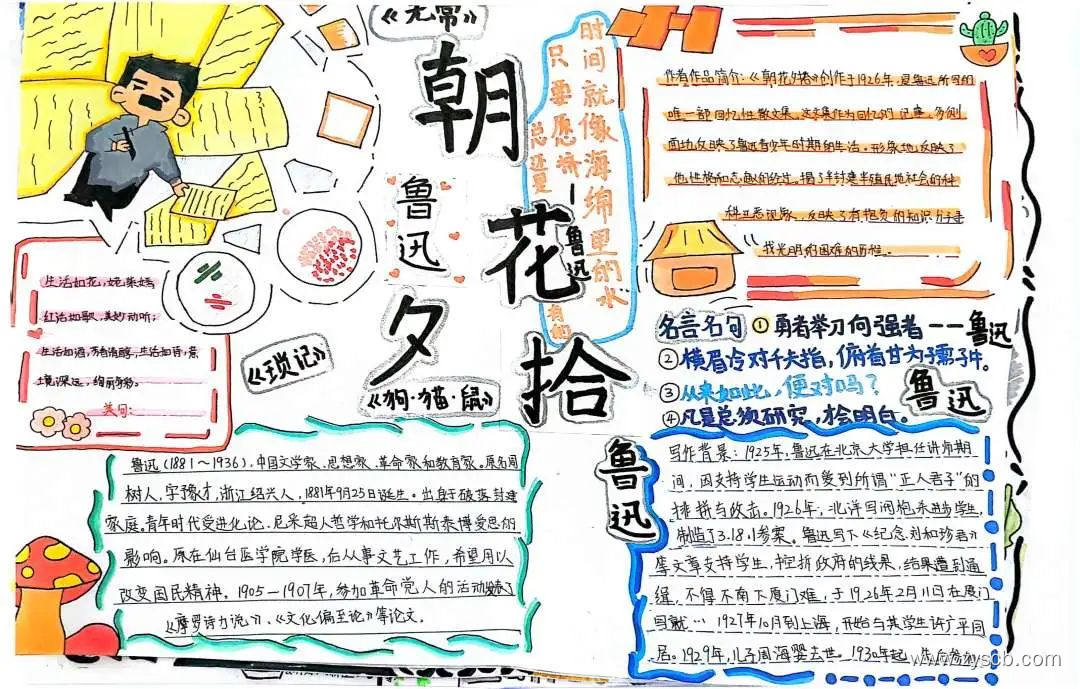 《无常》
朝
花
夕
拾
鲁
迅
时间就像海绵里的水
只要愿挤
总还是
有的
—鲁迅
作者作品简介:《朝花夕拾》创作于1926年,是鲁迅所写的
唯一部回忆性散文集,这本集作为回忆的记事,多侧
面地反映了鲁迅青少年时期的生活。形象地反映了
他性格和志趣的经过。揭了半封建半殖民地社会的种
种丑恶现象,反映了有抱负的知识分子寻
找光明的困难的历程。
生活如花,姹紫嫣
红;活如歌,美妙动听;
生活如酒,芳香清醇,生活如诗,意
境深远,绚丽多彩。
美句:
《琐记》
《狗·猫·鼠》
名言名句
①勇者举刀向强者——鲁迅
②横眉冷对千夫指,俯首甘为孺子牛。
③从来如此,便对吗?
④凡是总须研究,才会明白。
鲁迅
鲁迅(1881~1936),中国文学家、思想家、革命家和教育家。原名周
树人,字豫才,浙江绍兴人,1881年9月25日诞生。出身于破落封建
家庭。青年时代受进化论、尼采超人哲学和托尔斯斯泰博爱思的
影响。原在仙台医学院学医,后从事文艺工作,希望用以
改变国民精神。1905—1907年,参加革命党人的活动,发表了
《摩罗诗力说》、《文化偏至论》等论文。
鲁迅
写作背景:1925年,鲁迅在北京大学担任讲师期
间,因支持学生运动而受到所谓“正人君子”的
排挤与攻击。1926年,北洋军阀枪杀进步学生,
制造了3.18.1参案。鲁迅写下《纪念刘和珍君》
等文章支持学生,控拆政府的残暴,结果遭到通
缉,不得不南下厦门避难,于1926年2月11日在厦门
写就… 1927年10月到上海,开始与其学生许广平同
居。1929年,儿子周海婴去世。1930年起,
www.zyscb.com